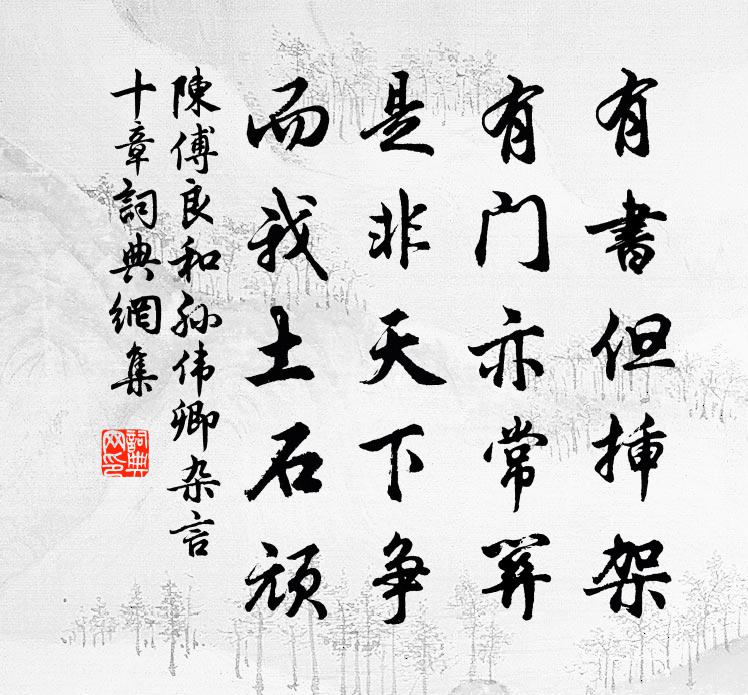 有書但挿架
有门亦常關
是非天下争
而我土石頑
陳傅良和孙伟卿杂言
十章詞典網集
詞典
网印